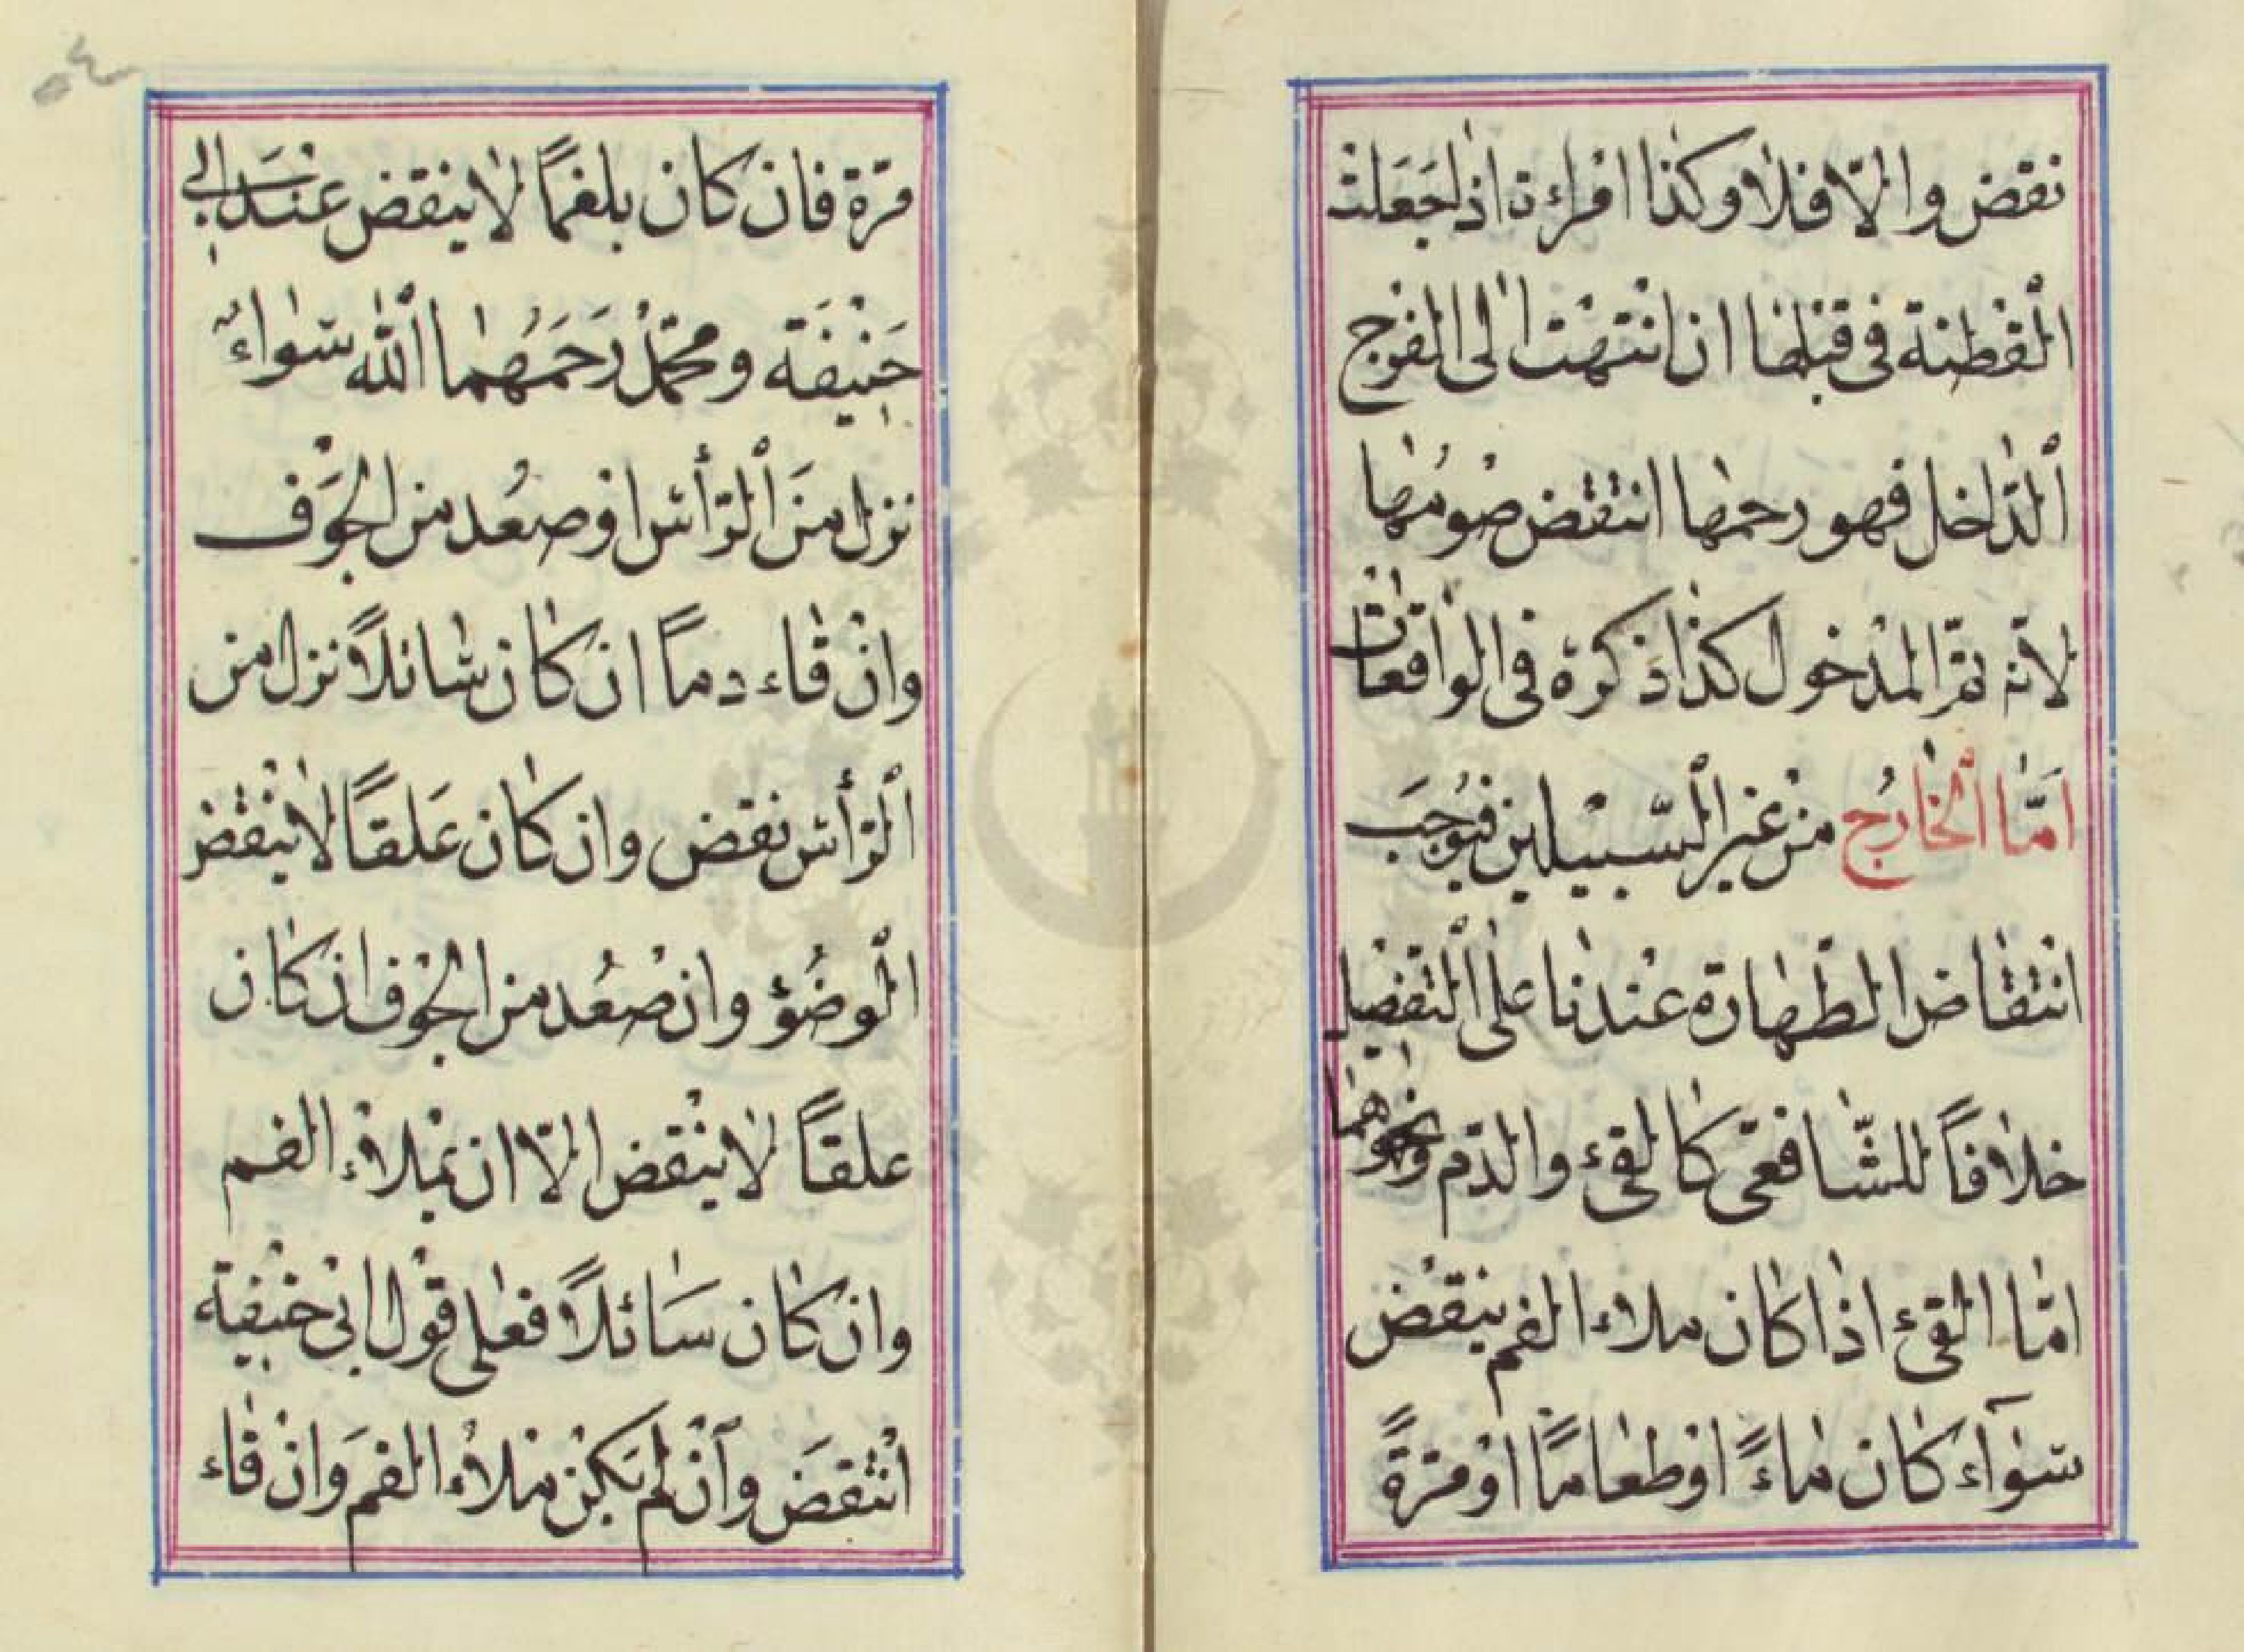 نقض والّا فلا وكذا امراءة اذا جعلت
القطنة فى قبلها ان انتهت الى الفرج
الدّاخل فهو رحمها انتقض صومها
لانّه تمّ المدخول كذا ذكره فى الواقعات
امّا الخارج من غير السّبيلين فيوجب
انتقاض الطّهارة عندنا على التفضيل
خلافاً للشّافعىّ كالقئ والدّم ونحوهما
امّا القئ اذا كان ملاء الفم ينقض
سوآء كان ماءً او طعاماً او مرّةً
مرّة فان كان بلغماً لا ينقض عند ابى
حنيفة ومحمّد رحمهما الله سواء
نزل من الرّأس او صعد من الجوف
وان قاء دماً ان كان سائلاً نزل من
الرّأس نقض وان كان علقاً لا ينقض
الوضؤ وان صعد من الجوف ان كان
علقاً لا ينقض الّا ان يملاء الفم
وان كان سائلاً فعلى قول ابى حنيفة
انتقض وان لم يكن ملاء الفم وان قاء